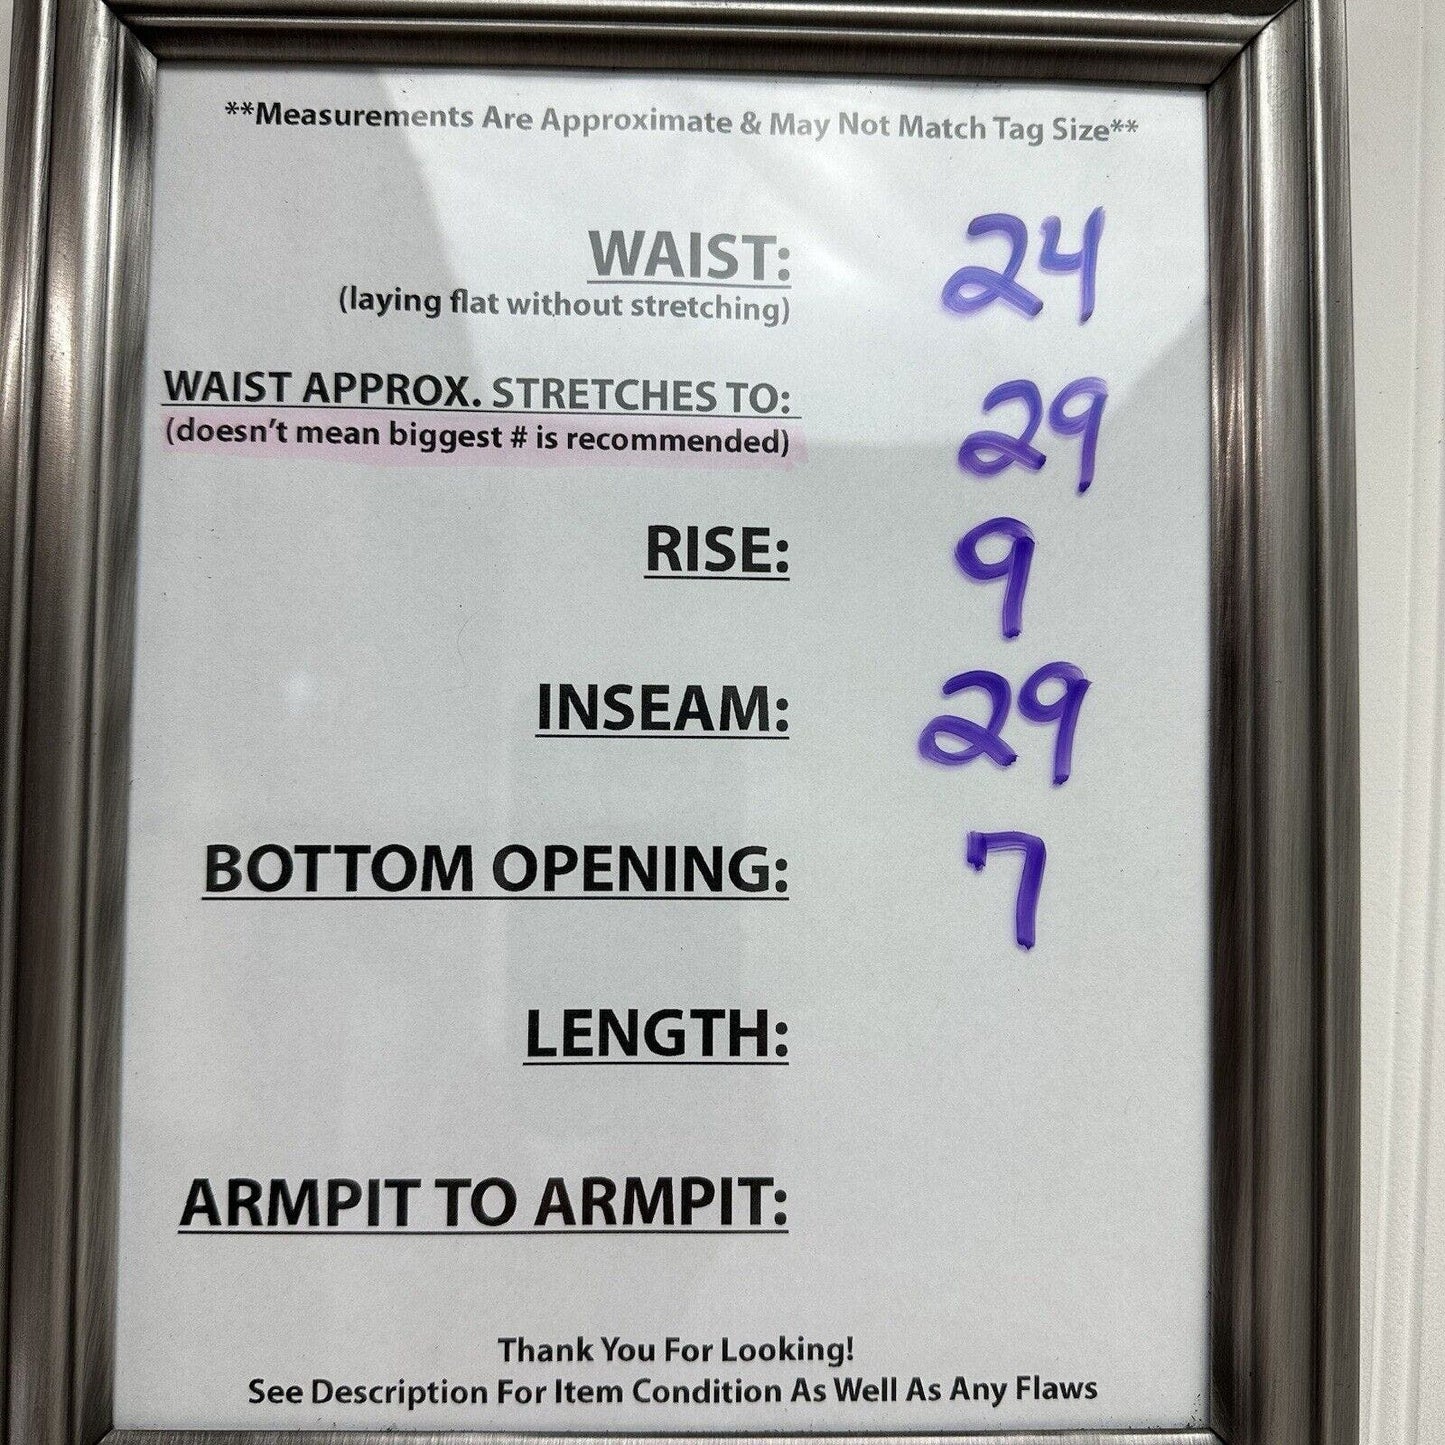 **Measurements Are Approximate & May Not Match Tag Size**
WAIST: 24
(laying flat without stretching)
WAIST APPROX. STRETCHES TO: 29
(doesn't mean biggest # is recommended)
RISE: 9
INSEAM: 29
BOTTOM OPENING: 7
LENGTH:
ARMPIT TO ARMPIT:
Thank You For Looking!
See Description For Item Condition As Well As Any Flaws